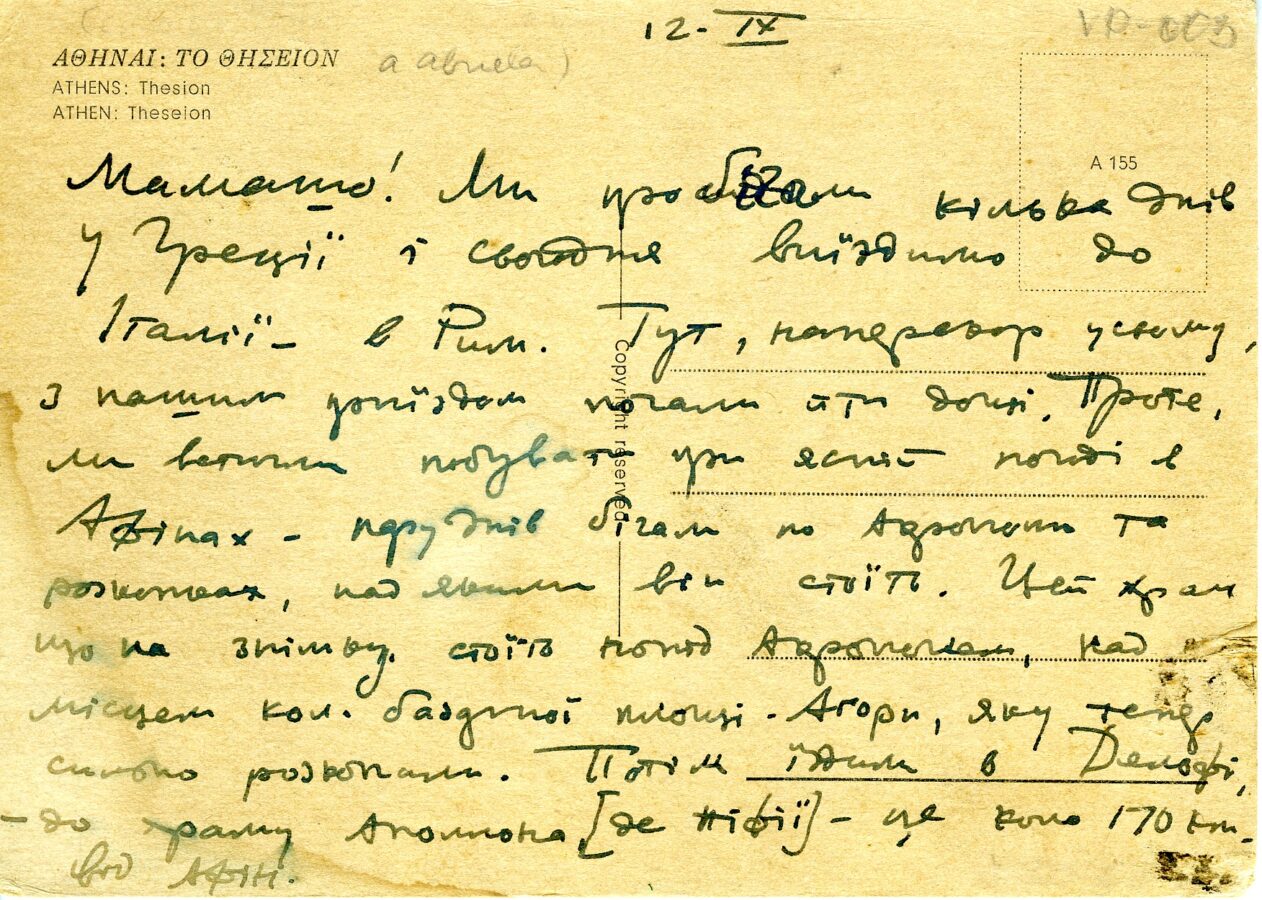 12-IX
VP-003
ΑΘΗΝΑΙ: ΤΟ ΘΗΣΕΙΟΝ
a abuela)
ATHENS: Thesion
ATHEN: Theseion
A 155
Copyright reserved
Мамашо! Ми пробігали кілька днів
у Греції і сьогодня виїздимо до
Італії – в Рим. Тут, наперекор усьому,
з нашим приїздом почали йти дощі. Проте,
ми встигли побувати при ясній погоді в
Афінах – пару днів бігали по Акрополи та
розкопках, над якими він стоїть. Цей храм
що на знімку стоїть понід Акрополем, над
місцем кол. базарної площі - Агори, яку тепер
сильно розкопали. Потім їздили в Дельфи,
– до храму Аполлона [де піфії] – це коло 170 км.
від Афін.